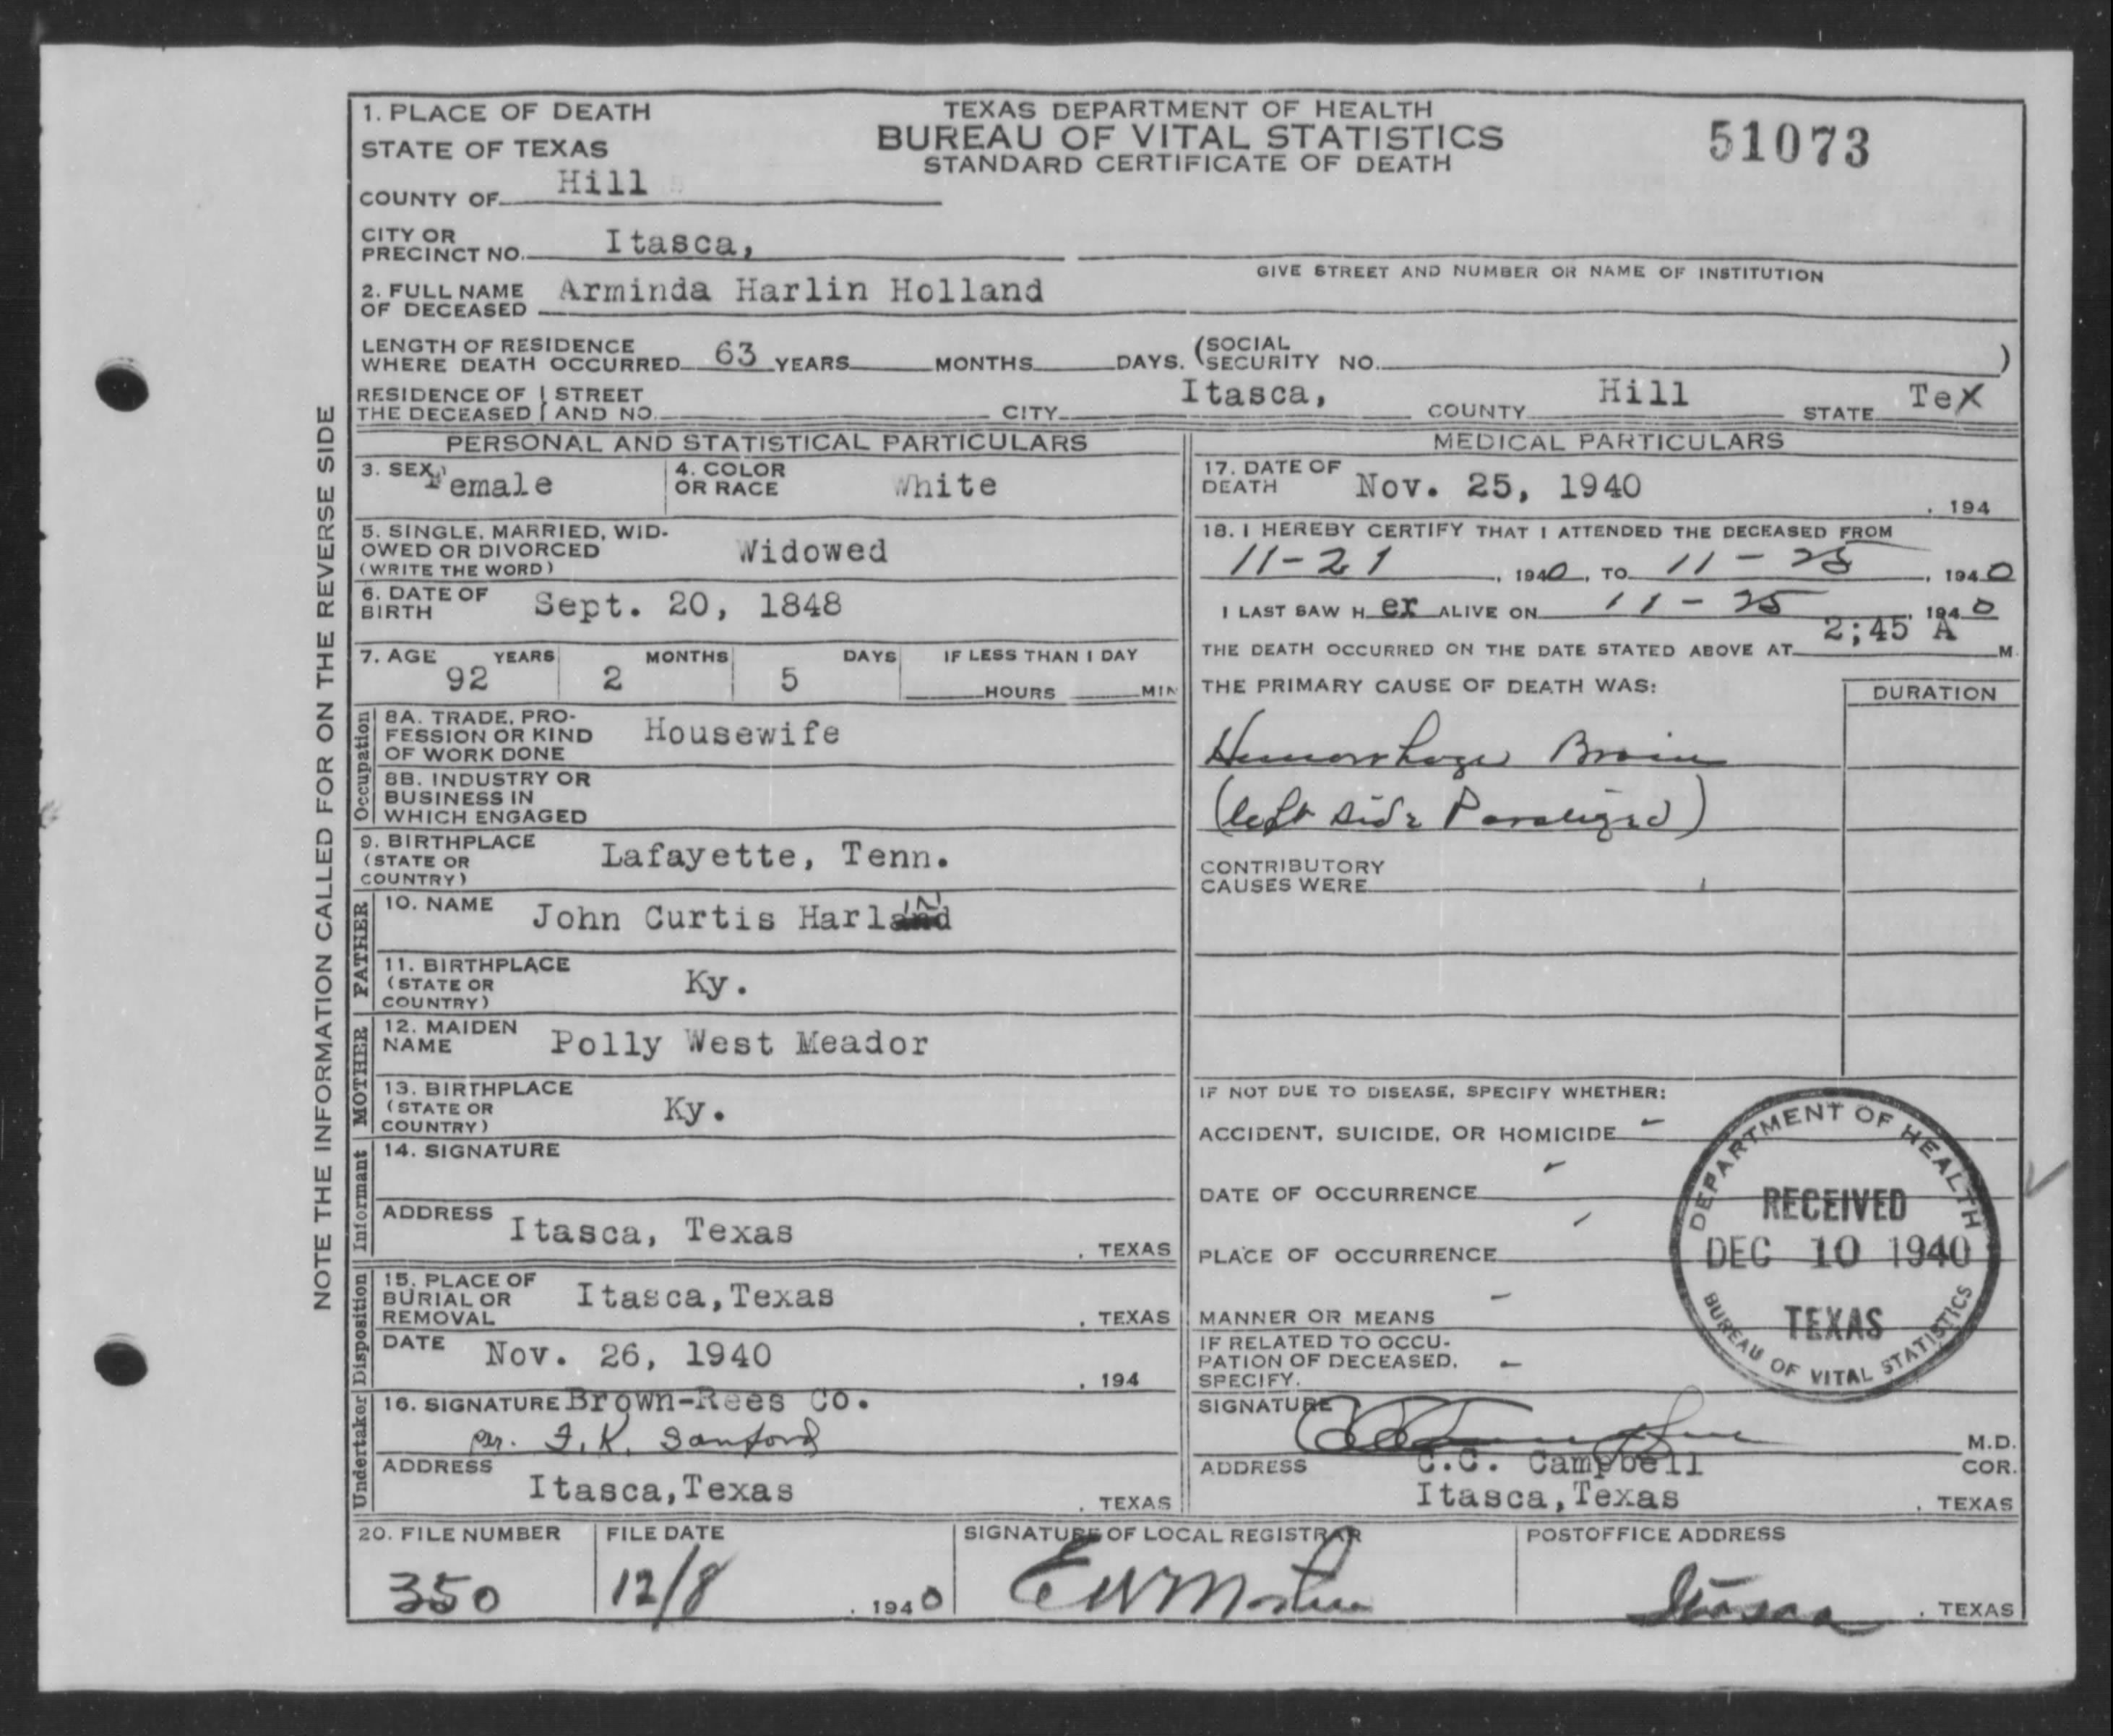 1. PLACE OF DEATH
STATE OF TEXAS
COUNTY OF Hill
TEXAS DEPARTMENT OF HEALTH
BUREAU OF VITAL STATISTICS
STANDARD CERTIFICATE OF DEATH
51073
CITY OR
PRECINCT NO. Itasca,
GIVE STREET AND NUMBER OR NAME OF INSTITUTION
2. FULL NAME
OF DECEASED Arminda Harlin Holland
LENGTH OF RESIDENCE
WHERE DEATH OCCURRED 63 YEARS MONTHS DAYS. (SOCIAL
SECURITY NO. )
RESIDENCE OF STREET
THE DECEASED AND NO. CITY Itasca, COUNTY Hill STATE Tex
PERSONAL AND STATISTICAL PARTICULARS
3. SEX Female
4. COLOR
OR RACE White
5. SINGLE, MARRIED, WID-
OWED OR DIVORCED
(WRITE THE WORD) Widowed
6. DATE OF
BIRTH Sept. 20, 1848
7. AGE YEARS MONTHS DAYS IF LESS THAN 1 DAY
92 2 5 HOURS MIN
Occupation
8A. TRADE, PRO-
FESSION OR KIND
OF WORK DONE Housewife
8B. INDUSTRY OR
BUSINESS IN
WHICH ENGAGED
9. BIRTHPLACE
(STATE OR
COUNTRY) Lafayette, Tenn.
FATHER
10. NAME John Curtis Harlin
11. BIRTHPLACE
(STATE OR
COUNTRY) Ky.
MOTHER
12. MAIDEN
NAME Polly West Meador
13. BIRTHPLACE
(STATE OR
COUNTRY) Ky.
Informant
14. SIGNATURE
ADDRESS Itasca, Texas , TEXAS
Disposition
15. PLACE OF
BURIAL OR
REMOVAL Itasca,Texas , TEXAS
DATE Nov. 26, 1940 , 194
Undertaker
16. SIGNATURE Brown-Rees Co.
per. F. K. Sanford
ADDRESS Itasca,Texas , TEXAS
MEDICAL PARTICULARS
17. DATE OF
DEATH Nov. 25, 1940 , 194
18. I HEREBY CERTIFY THAT I ATTENDED THE DECEASED FROM
11-21 , 1940 , TO 11-25 , 1940
I LAST SAW H er ALIVE ON 11-25 , 1940
THE DEATH OCCURRED ON THE DATE STATED ABOVE AT 2;45 A M.
THE PRIMARY CAUSE OF DEATH WAS:
DURATION
Hemorrhage Brain
(left side Paralized)
CONTRIBUTORY
CAUSES WERE
IF NOT DUE TO DISEASE, SPECIFY WHETHER:
ACCIDENT, SUICIDE, OR HOMICIDE -
DATE OF OCCURRENCE -
PLACE OF OCCURRENCE -
MANNER OR MEANS -
IF RELATED TO OCCU-
PATION OF DECEASED, -
SPECIFY.
SIGNATURE
M.D.
C.C. Campbell
COR.
ADDRESS Itasca,Texas , TEXAS
DEPARTMENT OF HEALTH
RECEIVED
DEC 10 1940
TEXAS
BUREAU OF VITAL STATISTICS
20. FILE NUMBER FILE DATE SIGNATURE OF LOCAL REGISTRAR POSTOFFICE ADDRESS
350 12/8 , 1940 Itasca , TEXAS
NOTE THE INFORMATION CALLED FOR ON THE REVERSE SIDE